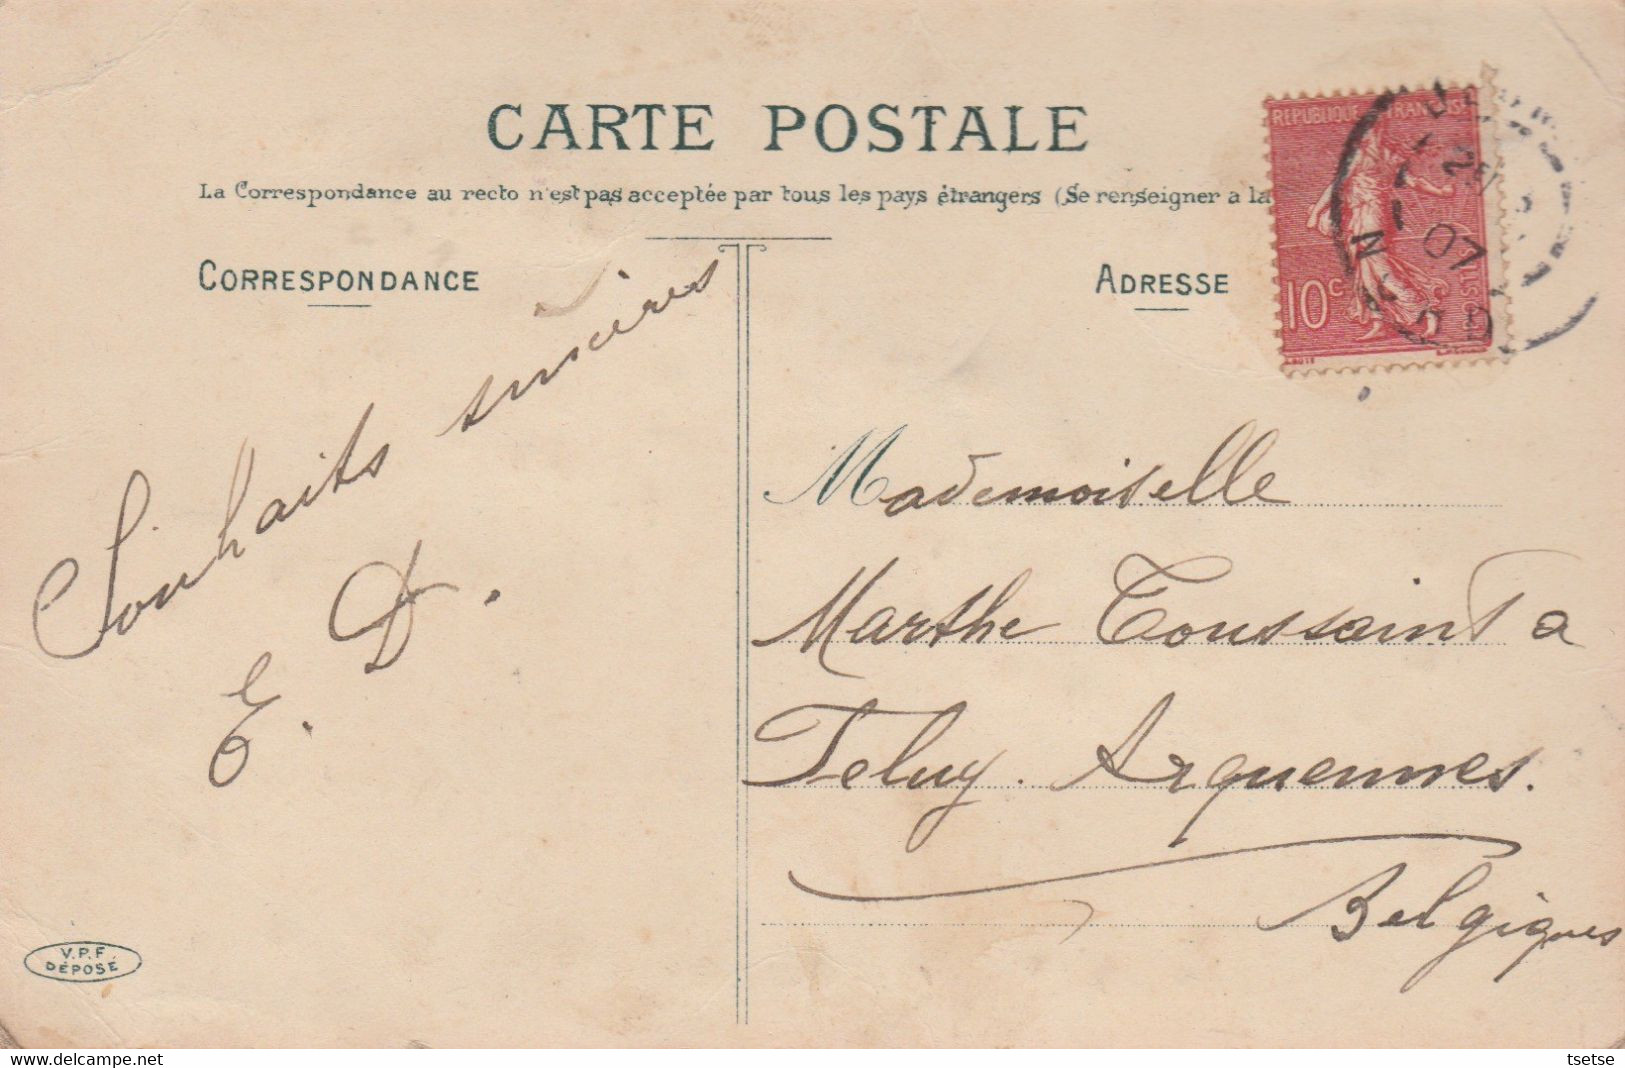 CARTE POSTALE
La Correspondance au recto n'est pas acceptée par tous les pays étrangers (Se renseigner a la
CORRESPONDANCE
ADRESSE
REPUBLIQUE FRANÇAISE
10c
07
Souhaits sincères
E. D.
Mademoiselle
Marthe Toussaint a
Feluy. Arquennes.
Belgiques
V.P.F.
DÉPOSÉ
www.delcampe.net
tsetse